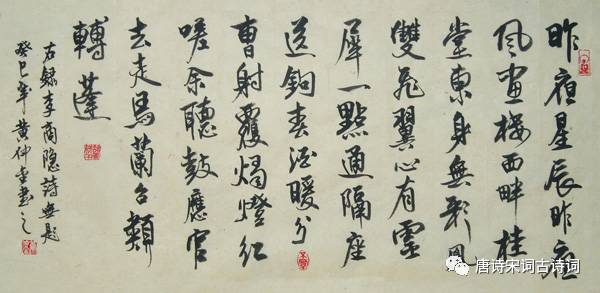 昨夜星辰昨夜
风畫楼西畔桂
堂東身無彩凤
雙飛翼心有靈
犀一點通隔座
送鉤春酒暖分
曹射覆燭燈红
嗟余聽鼓應官
去走馬蘭台類
轉蓬
右録李商隐詩無題
癸巳年黄仲金書之
唐诗宋词古诗词